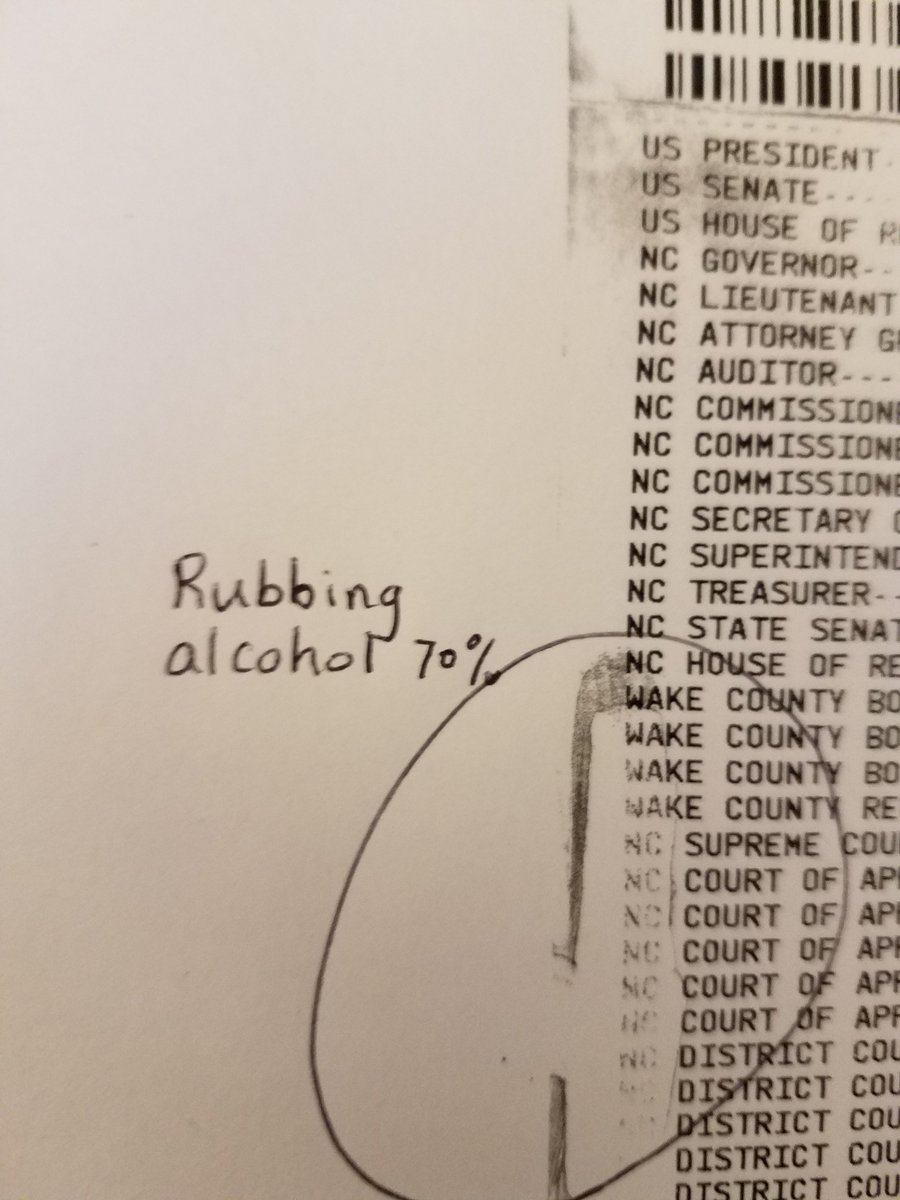 US PRESIDENT
US SENATE----
US HOUSE OF
NC GOVERNOR--
NC LIEUTENANT
NC ATTORNEY
NC AUDITOR---
NC COMMISSIONE
NC COMMISSIONE
NC COMMISSIONE
NC SECRETARY
NC SUPERINTEND
Rubbing
NC TREASURER--
NC STATE SENAT
alcohol 70%
NC HOUSE OF RE
WAKE COUNTY BO
WAKE COUNTY BO
WAKE COUNTY BO
WAKE COUNTY RE
NC SUPREME COU
NC COURT OF APP
NC COURT OF APP
NC COURT OF APP
NC COURT OF APP
NC COURT OF APP
NC DISTRICT COU
DISTRICT COU
DISTRICT COU
DISTRICT COU
DISTRICT COU